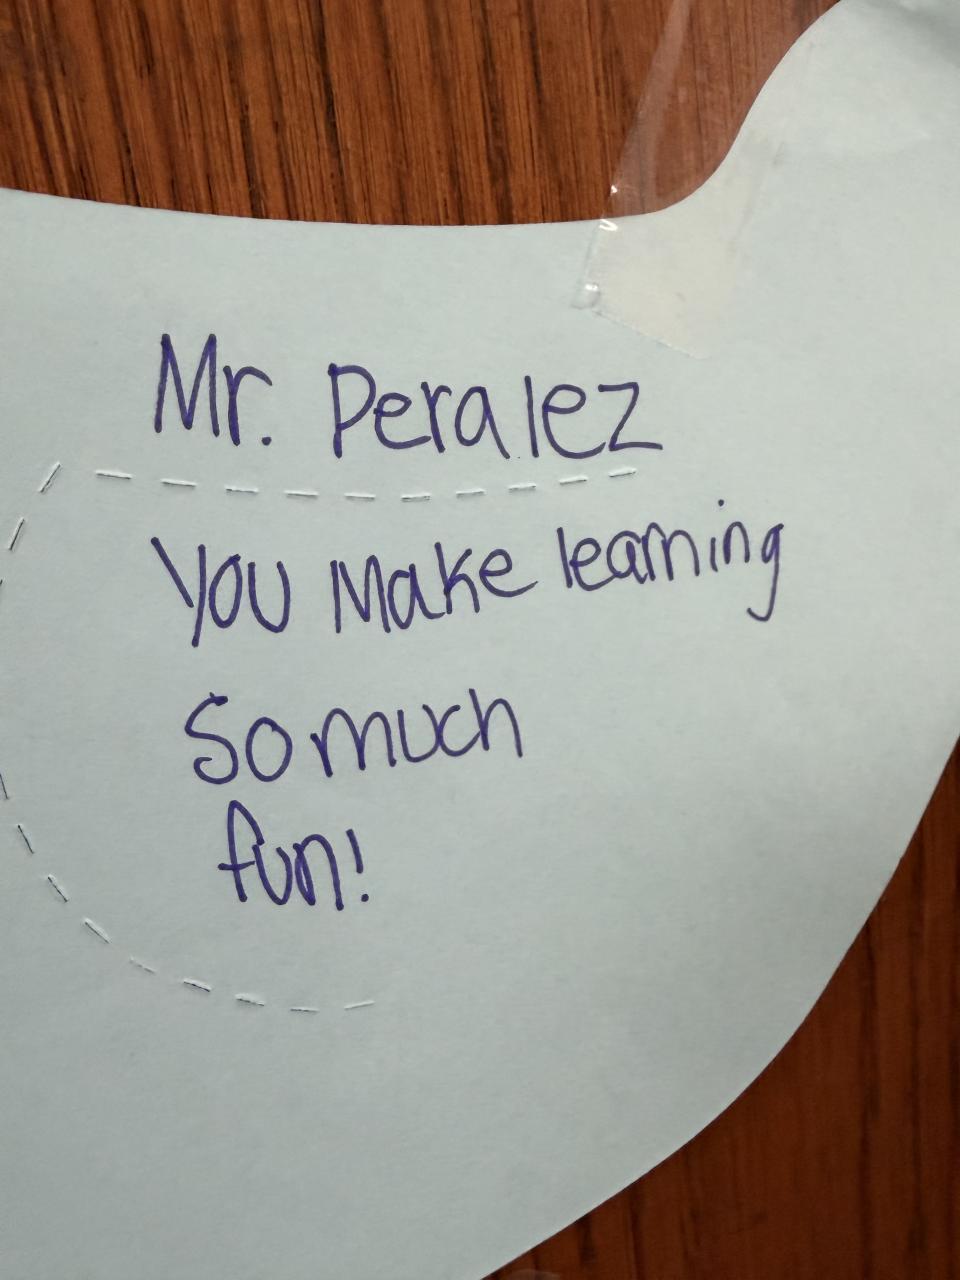 Mr. Peralez
You Make learning
So much
fun!